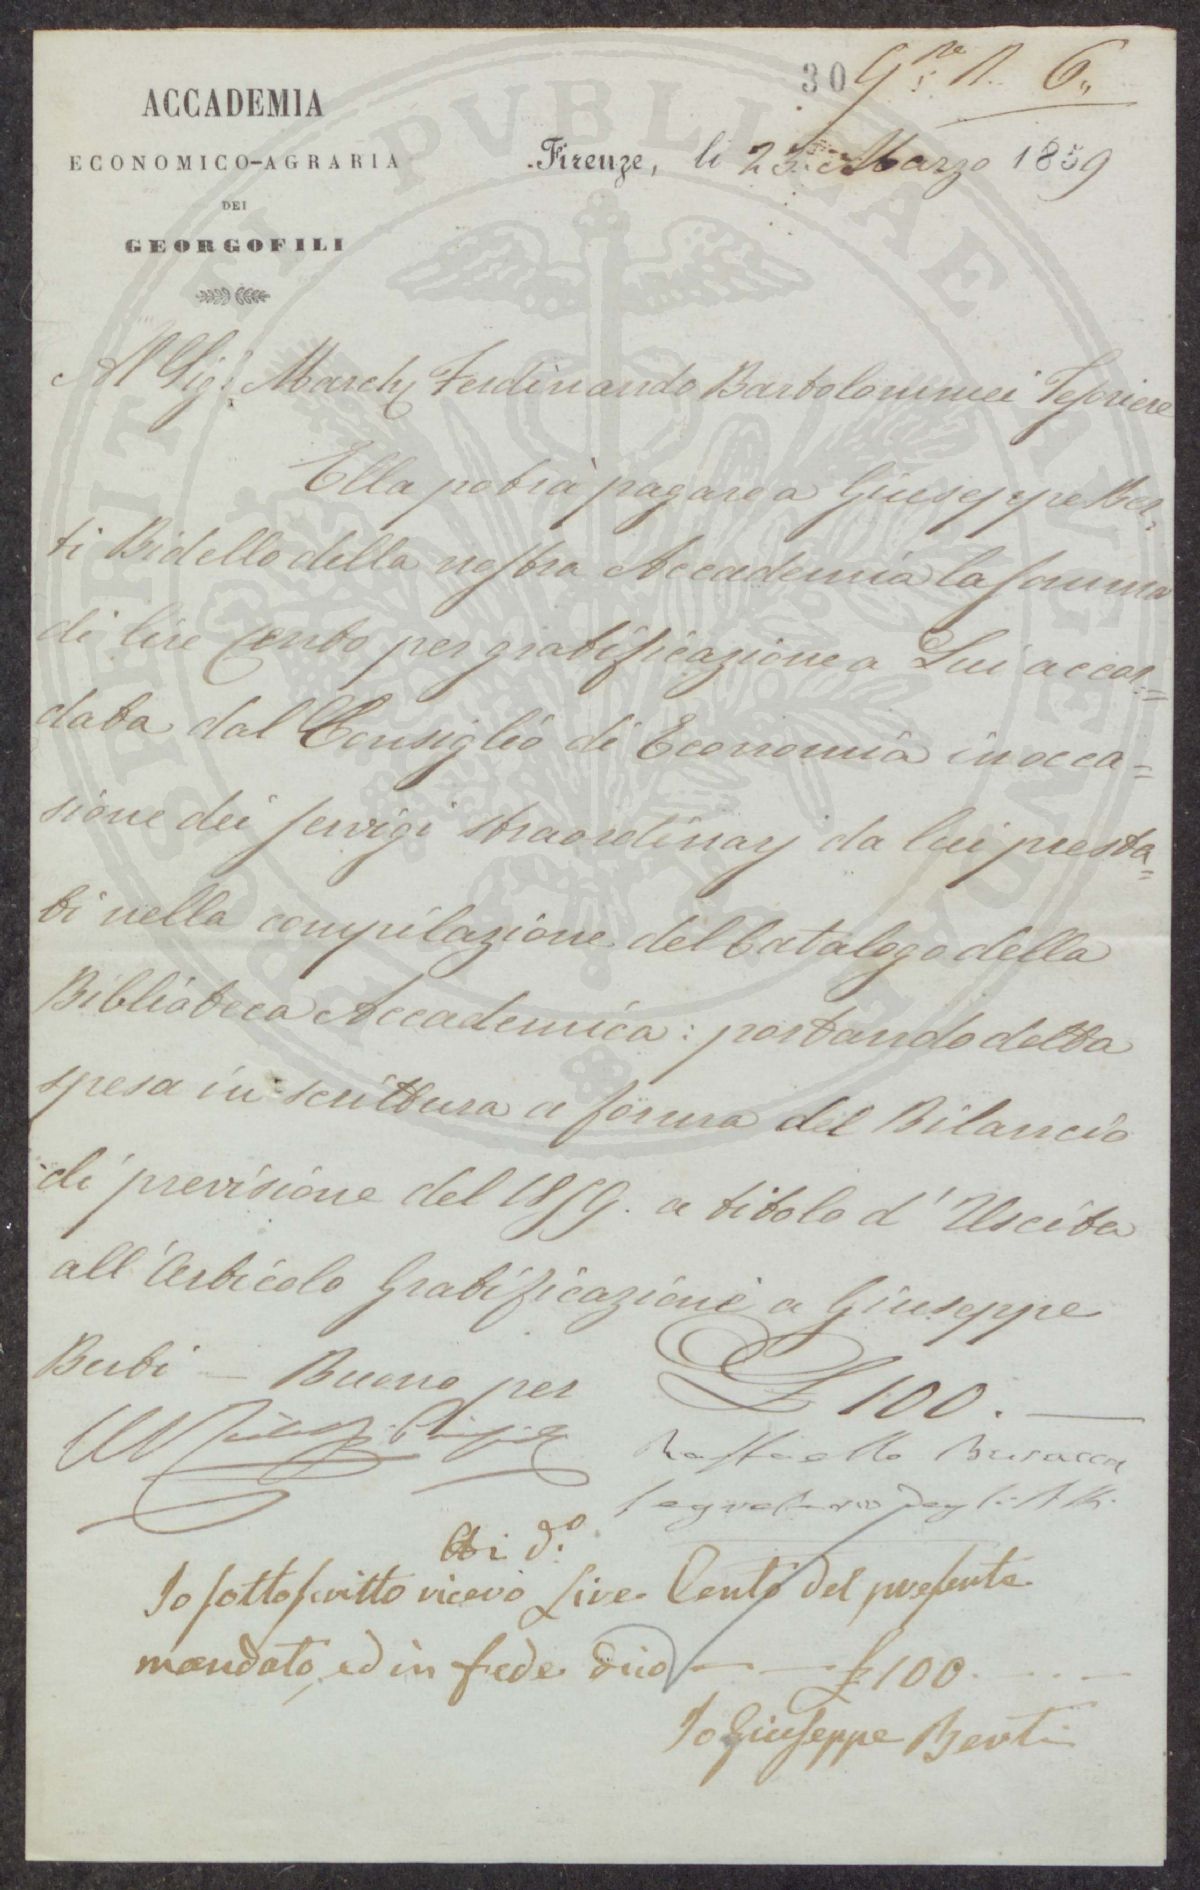 30 G.re N. 6,,
ACCADEMIA
ECONOMICO-AGRARIA
DEI
GEORGOFILI
Firenze, li 25 Marzo 1859
Al Sig.r March Ferdinando Bartolommei Tesoriere
Ella potrà pagare a Giuseppe Ber-
ti Bidello della nostra Accademia la somma
di lire Cento per gratificazione a Lui accor=
data dal Consiglio di Economia in occa=
sione dei servigi straordinarj da lui presta=
ti nella compilazione del Catalogo della
Biblioteca Accademica: portando detta
spesa in scrittura a forma del Bilancio
di previsione del 1859. a titolo d'Uscita
all'Articolo Gratificazione a Giuseppe
Berti — Buono per £ 100. —
Raffaello Busacca
Segretario degli Atti
Adi d.o
Io sottoscritto ricevo Lire Cento del presente
mandato, ed in fede dico — — £ 100 . — . . —
Io Giuseppe Berti
PUBLICAE